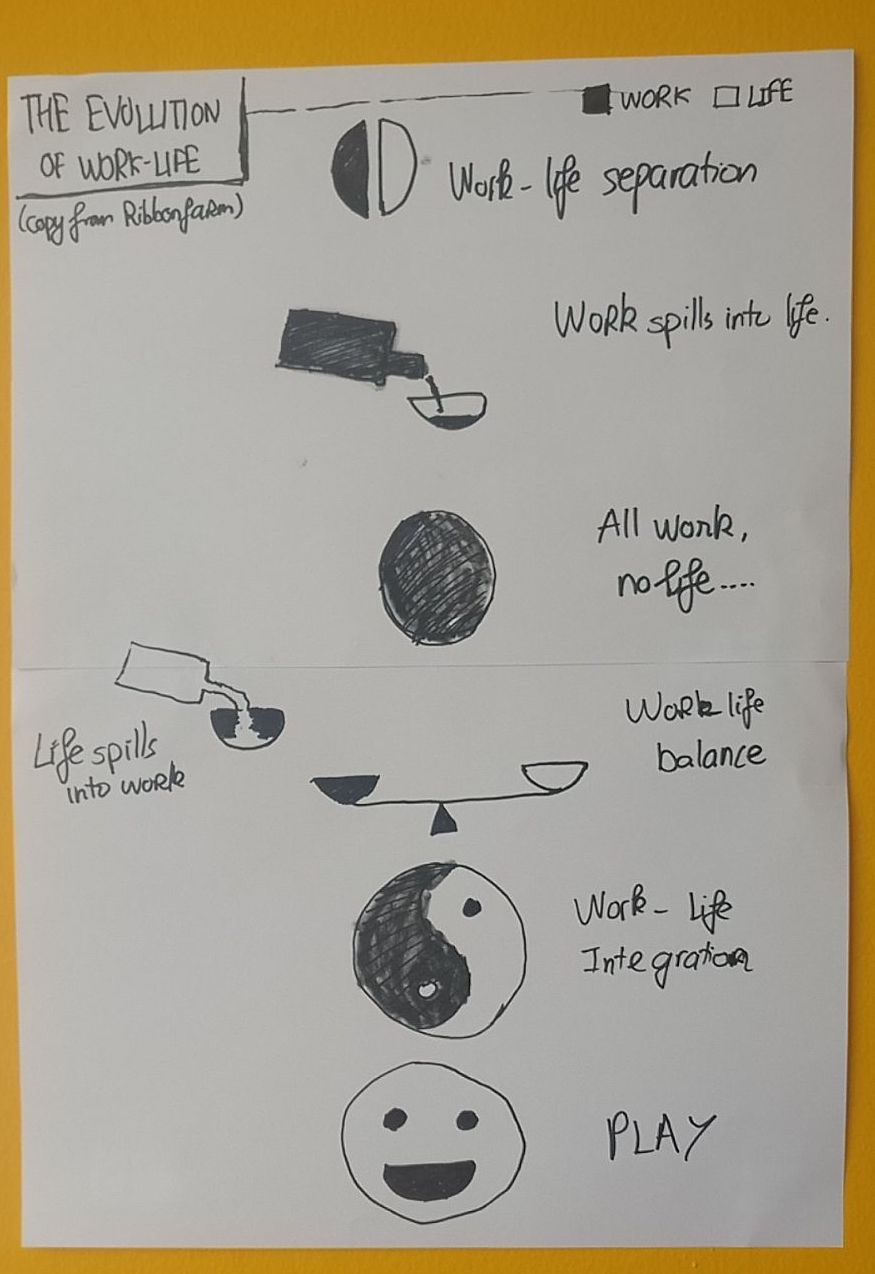 THE EVOLUTION
OF WORK-LIFE
(copy from Ribbonfarm)
WORK LIFE
Work-life separation
Work spills into life.
All work,
no life....
Life spills
into work
Work life
balance
Work-Life
Integration
PLAY